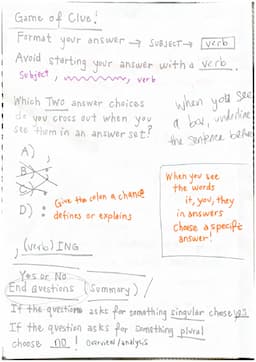 Game of Clue!
Format your answer → SUBJECT → verb
Avoid starting your answer with a verb.
Subject, , verb
Which Two answer choices
do you cross out when you
see them in an answer set?
When you see
a box, underline
the sentence before
A) ,
B)
C)
D) : Give the colon a chance
defines or explains
When you see
the words
it, you, they
in answers
choose a specific
answer!
, (verb) ING
Yes or No
End Questions (Summary)
If the question asks for something singular choose yes
If the question asks for something plural
choose no! Overview/analysis